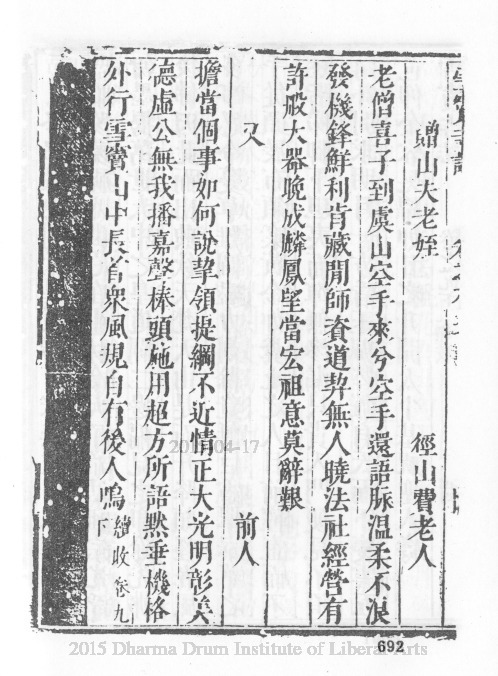 贈山夫老姪
徑山費老人
老僧喜子到虞山空手來兮空手還語脉溫柔不浪
發機鋒鮮利肯藏開師資道契無人曉法社經營有
許般大器晚成麟鳳望當宏祖意莫辭艱
又
前人
擔當個事如何說挈領提綱不近情正大光明彰美
德虛公無我播嘉聲棒頭施用超方所語默垂機格
外行雪竇山中長首衆風規自有後人鳴
續收卷九
下
2015-04-17
692
2015 Dharma Drum Institute of Liberal Arts